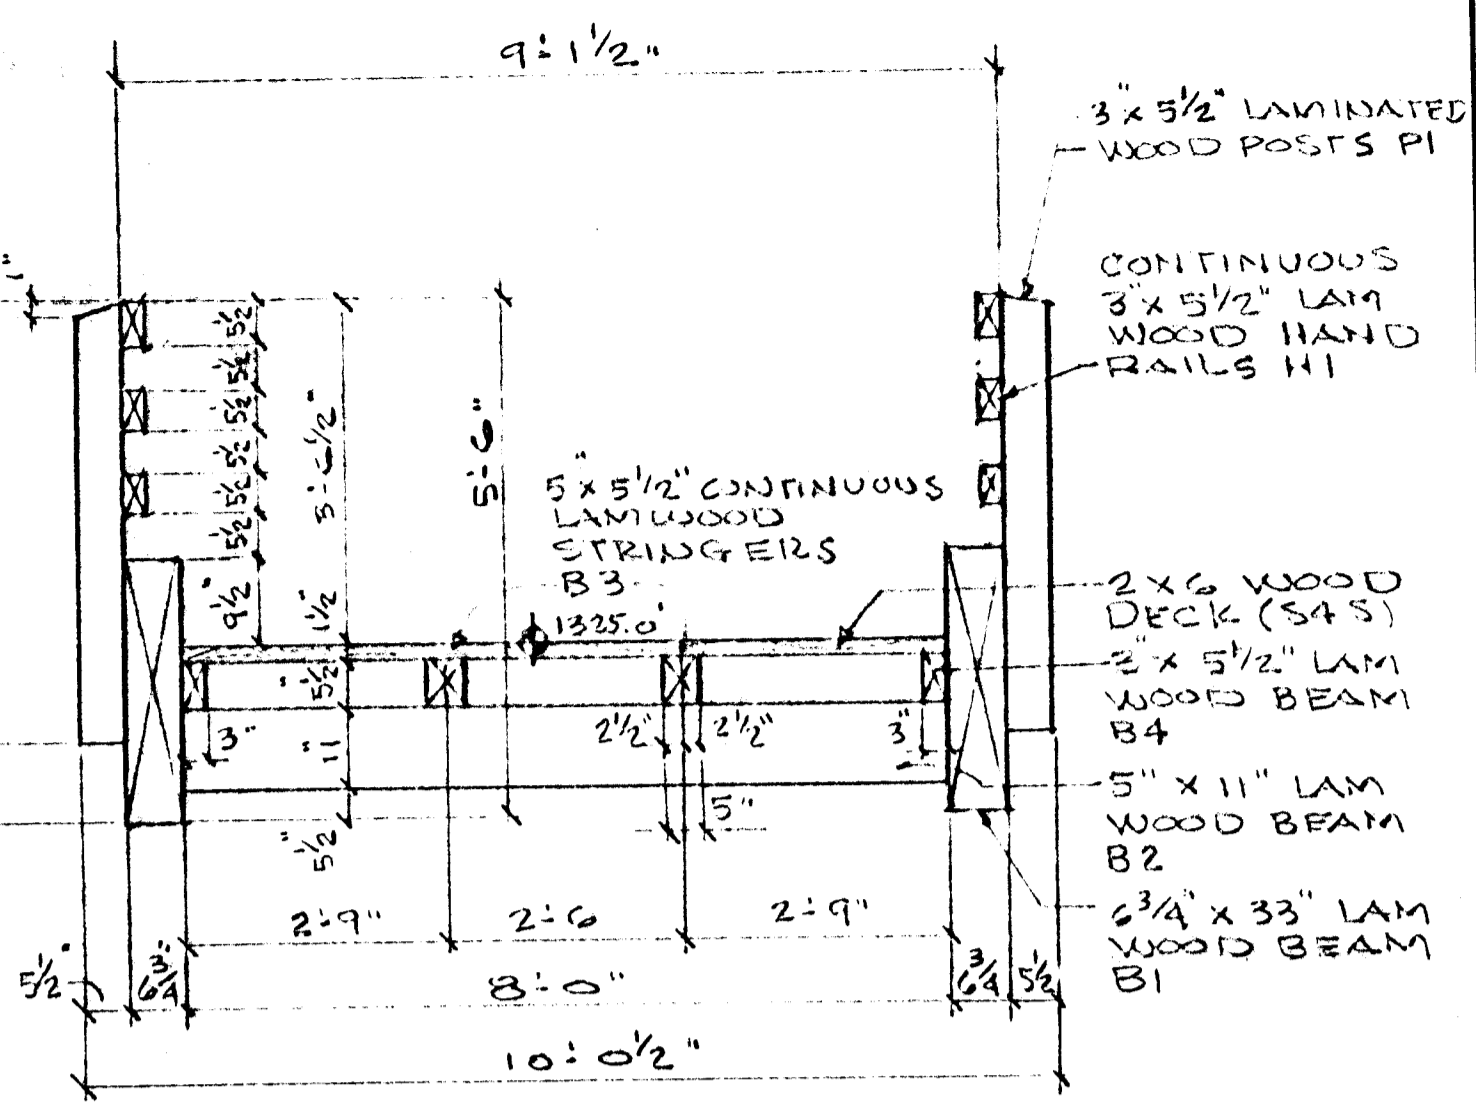 9'-1 1/2"
3" x 5 1/2" LAMINATED
WOOD POSTS P1
1"
CONTINUOUS
3" x 5 1/2" LAM
WOOD HAND
RAILS H1
5 1/2
5 1/2
5 1/2
5 1/2
5 1/2
5 1/2
9 1/2"
3'-6 1/2"
1 1/2"
5 1/2"
11"
5 1/2"
5'-6"
5" x 5 1/2" CONTINUOUS
LAM WOOD
STRINGERS
B3
1325.0'
2 x 6 WOOD
DECK (S4S)
3" x 5 1/2" LAM
WOOD BEAM
B4
3"
2 1/2"
2 1/2"
3"
5"
5" x 11" LAM
WOOD BEAM
B2
6 3/4" x 33" LAM
WOOD BEAM
B1
2'-9"
2'-6
2'-9"
5 1/2"
6 3/4"
8'-0"
6 3/4
5 1/2
10'-0 1/2"